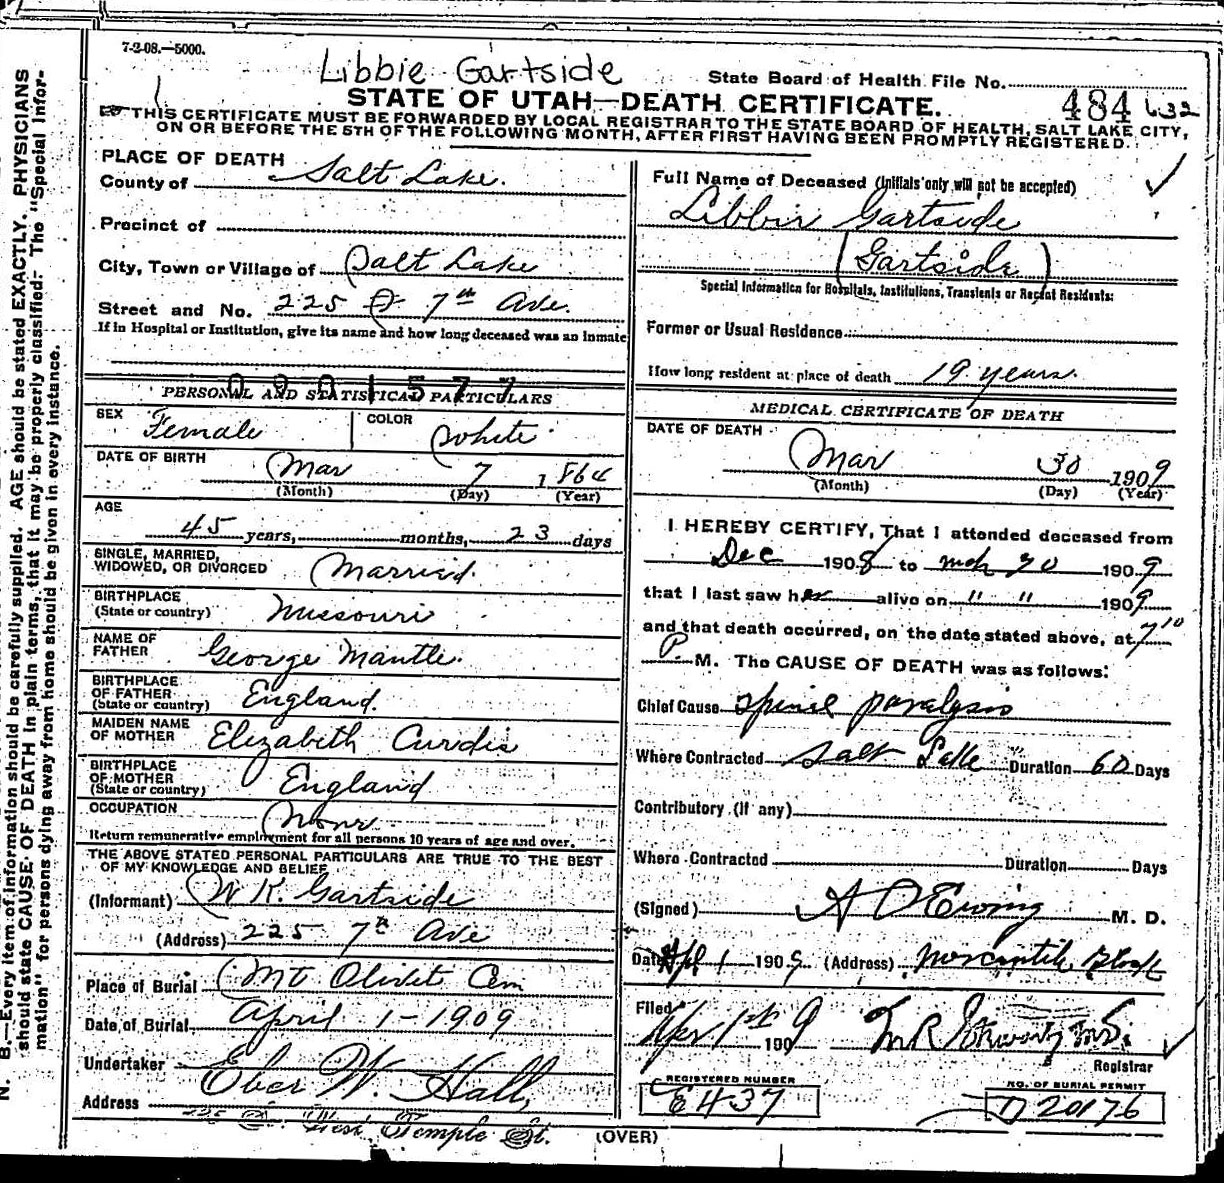 7-2-08.—5000.
Libbie Gartside
State Board of Health File No.
484 632
STATE OF UTAH—DEATH CERTIFICATE.
THIS CERTIFICATE MUST BE FORWARDED BY LOCAL REGISTRAR TO THE STATE BOARD OF HEALTH, SALT LAKE CITY,
ON OR BEFORE THE 5TH OF THE FOLLOWING MONTH, AFTER FIRST HAVING BEEN PROMPTLY REGISTERED.
N. B.—Every item of information should be carefully supplied. AGE should be stated EXACTLY. PHYSICIANS
should state CAUSE OF DEATH in plain terms, that it may be properly classified. The "Special Infor-
mation" for persons dying away from home should be given in every instance.
PLACE OF DEATH
County of Salt Lake.
Precinct of
City, Town or Village of Salt Lake
Street and No. 225 7th Ave.
If in Hospital or Institution, give its name and how long deceased was an inmate
0901577
PERSONAL AND STATISTICAL PARTICULARS
SEX Female COLOR White
DATE OF BIRTH Mar 7 1864
(Month) (Day) (Year)
AGE
45 years, months, 23 days
SINGLE, MARRIED,
WIDOWED, OR DIVORCED Married.
BIRTHPLACE
(State or country) Missouri
NAME OF
FATHER George Mantle.
BIRTHPLACE
OF FATHER
(State or country) England.
MAIDEN NAME
OF MOTHER Elizabeth Curdis
BIRTHPLACE
OF MOTHER
(State or country) England
OCCUPATION None
Return remunerative employment for all persons 10 years of age and over.
THE ABOVE STATED PERSONAL PARTICULARS ARE TRUE TO THE BEST
OF MY KNOWLEDGE AND BELIEF
(Informant) W K. Gartside
(Address) 225 7th Ave
Place of Burial Mt Olivet Cem
Date of Burial April 1-1909
Undertaker Eber W. Hall,
Address West Temple St.
Full Name of Deceased (Initials only will not be accepted)
Libbie Gartside
(Gartside)
Special Information for Hospitals, Institutions, Transients or Recent Residents:
Former or Usual Residence
How long resident at place of death 19 years.
MEDICAL CERTIFICATE OF DEATH
DATE OF DEATH
Mar 30 1909
(Month) (Day) (Year)
I HEREBY CERTIFY, That I attended deceased from
Dec 1908 to mch 30 1909
that I last saw her alive on " " 1909
and that death occurred, on the date stated above, at 7 10
P. M. The CAUSE OF DEATH was as follows:
Chief Cause Spinel paralysis
Where Contracted Salt Lake Duration 60 Days
Contributory (if any)
Where Contracted Duration Days
(Signed) A D Ewing M. D.
Date Apl 1 1909 (Address) Mercantile Block
Filed
Apr 1st 1909
Registrar
REGISTERED NUMBER
E437
NO. OF BURIAL PERMIT
D 20176
(OVER)